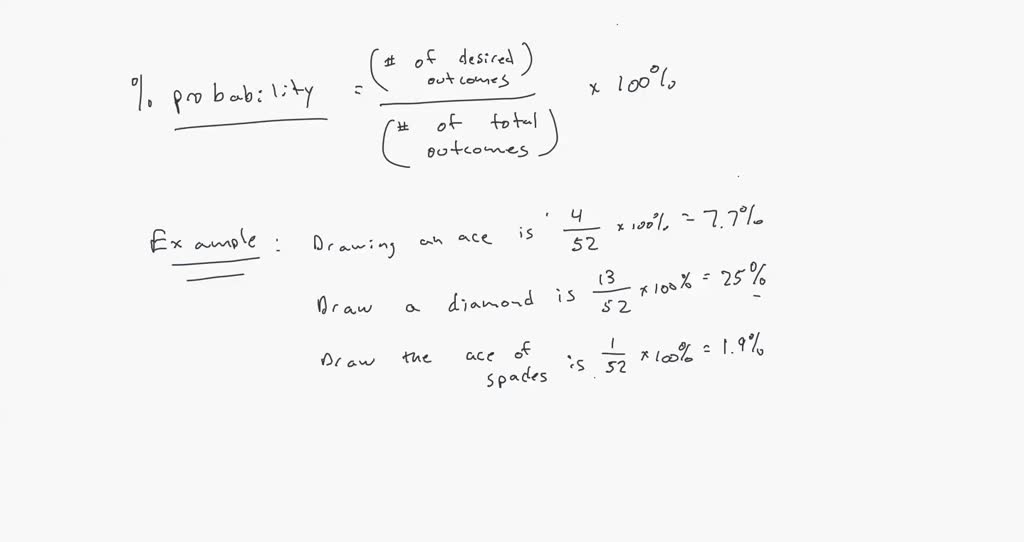 % probability = (# of desired outcomes) / (# of total outcomes) x 100%
Example: Drawing an ace is 4/52 x 100% = 7.7%
Draw a diamond is 13/52 x 100% = 25%
Draw the ace of spades is 1/52 x 100% = 1.9%